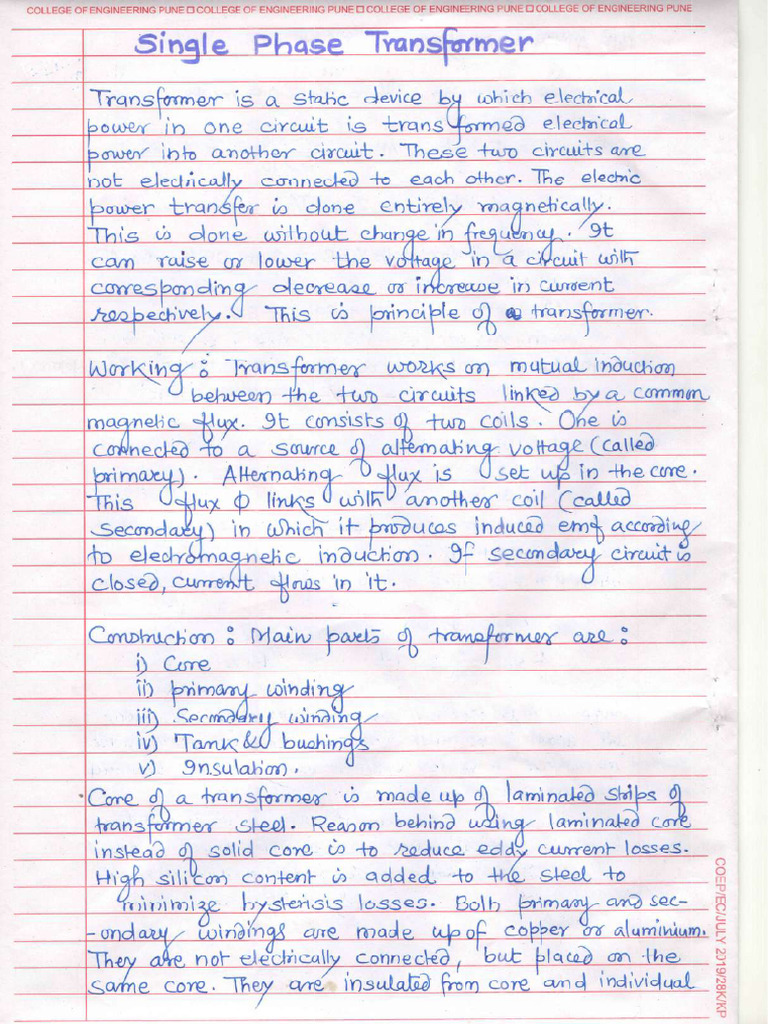 COLLEGE OF ENGINEERING PUNE □ COLLEGE OF ENGINEERING PUNE □ COLLEGE OF ENGINEERING PUNE □ COLLEGE OF ENGINEERING PUNE
Single Phase Transformer
Transformer is a static device by which electrical
power in one circuit is transformed electrical
power into another circuit. These two circuits are
not electrically connected to each other. The electric
power transfer is done entirely magnetically.
This is done without change in frequency. It
can raise or lower the voltage in a circuit with
corresponding decrease or increase in current
respectively. This is principle of a transformer.
Working : Transformer works on mutual induction
between the two circuits linked by a common
magnetic flux. It consists of two coils. One is
connected to a source of alternating voltage (called
primary). Alternating flux is set up in the core.
This flux φ links with another coil (called
secondary) in which it produces induced emf according
to electromagnetic induction. If secondary circuit is
closed, current flows in it.
Construction : Main parts of transformer are :
i) Core
ii) primary winding
iii) Secondary winding
iv) Tank & bushings
v) Insulation.
Core of a transformer is made up of laminated strips of
transformer steel. Reason behind using laminated core
instead of solid core is to reduce eddy current losses.
High silicon content is added to the steel to
minimize hysterisis losses. Both primary and sec-
-ondary windings are made up of copper or aluminium.
They are not electrically connected, but placed on the
same core. They are insulated from core and individual
COEP/EC/JULY 2019/28K/KP